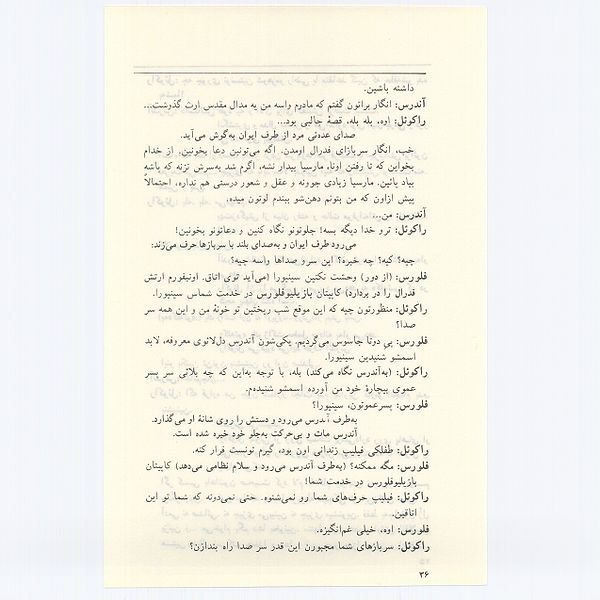 داشته باشین.
آندرس: انگار براتون گفتم که مادرم واسه من یه مدال مقدس ارث گذوشت...
راکوئل: اوه، بله بله، قصهٔ جالبی بود...
صدای عده‌ئی مرد از طرف ایوان به‌گوش می‌آید.
خب، انگار سربازای فدرال اومدن. اگه می‌تونین دعا بخونین. از خدام
بخواین که تا رفتن اونا، مارسیا بیدار نشه، اگرم شد به‌سرش نزنه که پاشه
بیاد پائین. مارسیا زیادی جوونه و عقل و شعور درستی هم نداره، احتمالاً
پیش ازاون که من بتونم دهن‌شو ببندم لوتون میده.
آندرس: من...
راکوئل: ترو خدا دیگه بسه! جلوتونو نگاه کنین و دعاتونو بخونین!
می‌رود طرف ایوان و به‌صدای بلند با سربازها حرف می‌زند:
چیه؟ کیه؟ چه خبره؟ این سرو صداها واسه چیه؟
فلورس: (از دور) وحشت نکنین سینیورا (می‌آید توی اتاق. اونیفورم ارتش
فدرال را در بردارد) کاپیتان بازیلیوفلورس در خدمت شماس سینیورا.
راکوئل: منظورتون چیه که این موقع شب ریختین تو خونهٔ من و این همه سر
صدا؟
فلورس: پی دوتا جاسوس می‌گردیم. یکی‌شون آندرس دل‌لاتوی معروفه، لابد
اسمشو شنیدین سینیورا.
راکوئل: (به‌آندرس نگاه می‌کند) بله، با توجه به‌این که چه بلائی سر پسر
عموی بیچارهٔ خود من آورده اسمشو شنیده‌م.
فلورس: پسرعموتون، سینیورا؟
به‌طرف آندرس می‌رود و دستش را روی شانهٔ او می‌گذارد.
آندرس مات و بی‌حرکت به‌جلو خود خیره شده است.
راکوئل: طفلکی فیلیپ زندانی اون بود، گیرم تونست فرار کنه.
فلورس: مگه ممکنه؟ (به‌طرف آندرس می‌رود و سلام نظامی می‌دهد) کاپیتان
بازیلیوفلورس در خدمت شما!
راکوئل: فیلیپ حرف‌های شما رو نمی‌شنوه. حتی نمی‌دونه که شما تو این
اتاقین.
فلورس: اوه، خیلی غم‌انگیزه.
راکوئل: سربازهای شما مجبورن این قدر سر صدا راه بندازن؟
۳۶